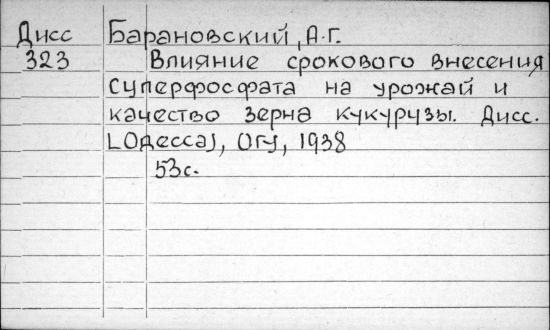 Дисс Барановский, А.Г.
323 Влияние срокового внесения
суперфосфата на урожай и
качество зерна кукурузы. Дисс.
[Одесса], ОГУ, 1938
53с.